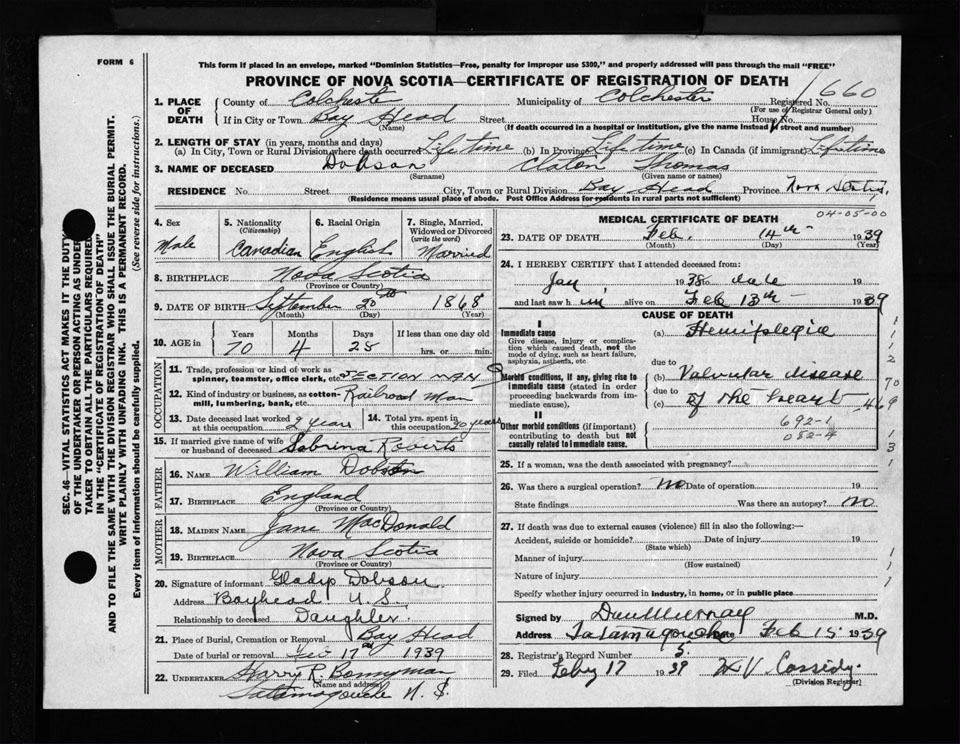 FORM 6
This form if placed in an envelope, marked "Dominion Statistics—Free, penalty for improper use $300," and properly addressed will pass through the mail "FREE"
PROVINCE OF NOVA SCOTIA—CERTIFICATE OF REGISTRATION OF DEATH
1. PLACE OF DEATH County of Colchester Municipality of Colchester Registered No. 660
(For use of Registrar General only)
If in City or Town Bay Head Street House No.
(Name) (If death occurred in a hospital or institution, give the name instead of street and number)
2. LENGTH OF STAY (in years, months and days)
(a) In City, Town or Rural Division where death occurred Life time (b) In Province Life time (c) In Canada (if immigrant) Lifetime
3. NAME OF DECEASED Dobson Thomas
(Surname) (Given name or names)
RESIDENCE No. Street City, Town or Rural Division Bay Head Province Nova Scotia
(Residence means usual place of abode. Post Office Address for residents in rural parts not sufficient)
SEC. 46—VITAL STATISTICS ACT MAKES IT THE DUTY
OF THE UNDERTAKER OR PERSON ACTING AS UNDER-
TAKER TO OBTAIN ALL THE PARTICULARS REQUIRED
IN THE "CERTIFICATE OF REGISTRATION OF DEATH"
AND TO FILE THE SAME WITH THE DIVISION REGISTRAR WHO SHALL ISSUE THE BURIAL PERMIT.
WRITE PLAINLY WITH UNFADING INK. THIS IS A PERMANENT RECORD.
Every item of information should be carefully supplied. (See reverse side for instructions.)
4. Sex 5. Nationality 6. Racial Origin 7. Single, Married,
(Citizenship) Widowed or Divorced
(write the word)
Male Canadian English Married
8. BIRTHPLACE Nova Scotia
(Province or Country)
9. DATE OF BIRTH September 20th 1868
(Month) (Day) (Year)
10. AGE in Years Months Days If less than one day old
70 4 25 hrs. or min.
OCCUPATION
11. Trade, profession or kind of work as
spinner, teamster, office clerk, etc. SECTION MAN
12. Kind of industry or business, as cotton-
mill, lumbering, bank, etc. Railroad Man
13. Date deceased last worked 14. Total yrs. spent in
at this occupation 2 years this occupation 20 years
15. If married give name of wife
or husband of deceased Sabrina Roberts
FATHER
16. NAME William Dobson
17. BIRTHPLACE England
(Province or Country)
MOTHER
18. MAIDEN NAME Jane MacDonald
19. BIRTHPLACE Nova Scotia
(Province or Country)
20. Signature of informant Gladys Dobson
Address Bayhead N.S.
Relationship to deceased Daughter.
21. Place of Burial, Cremation or Removal Bay Head
Date of burial or removal Feb 17th 1939
22. UNDERTAKER Harry R. Bonnyman
(Name and address)
Tatamagouche N.S.
MEDICAL CERTIFICATE OF DEATH
04-05-00
23. DATE OF DEATH Feb. 14th 1939
(Month) (Day) (Year)
24. I HEREBY CERTIFY that I attended deceased from:
Jan 1938 to date 19
and last saw him alive on Feb 13th 1939
CAUSE OF DEATH
I
Immediate cause
Give disease, injury or complica-
tion which caused death, not the
mode of dying, such as heart failure,
asphyxia, asthenia, etc.
(a) Hemiplegia
due to
Morbid conditions, if any, giving rise to
immediate cause (stated in order
proceeding backwards from im-
mediate cause).
(b) Valvular disease
due to
(c) of the heart
II
Other morbid conditions (if important)
contributing to death but not
causally related to immediate cause.
692-1
082-4
25. If a woman, was the death associated with pregnancy?
26. Was there a surgical operation? No Date of operation 19
State findings Was there an autopsy? No
27. If death was due to external causes (violence) fill in also the following:—
Accident, suicide or homicide? Date of injury 19
(State which)
Manner of injury
(How sustained)
Nature of injury
Specify whether injury occurred in industry, in home, or in public place
Signed by Dan Murray M.D.
Address Tatamagouche Date Feb 15 1939
28. Registrar's Record Number 5.
29. Filed Feby 17 1939 Cassidy.
(Division Registrar)